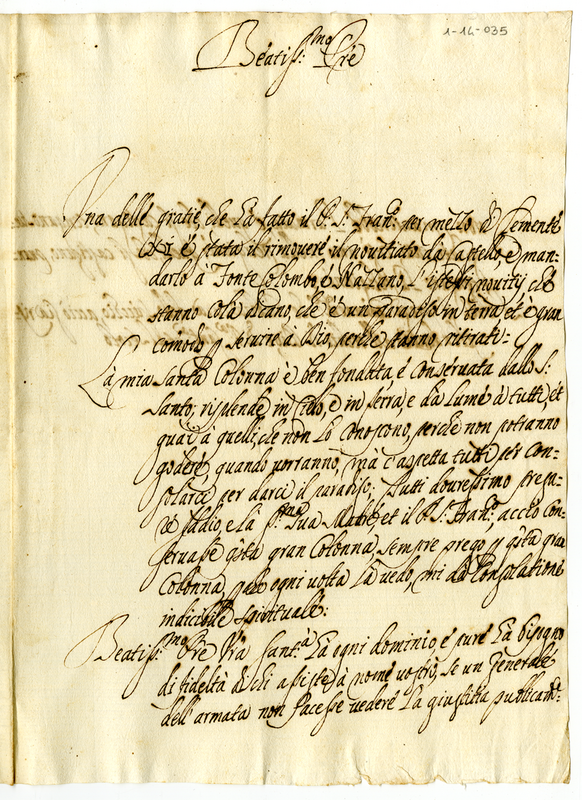 1-14-035
Beatiss:mo Pre
Una delle gratie, che hà fatto il P. S. Fran:co per mezzo di Clemente
XI è stata il rimovere il novitiato da Castello, e man=
darlo à Fonte Colombo, è Nazzano, L'istessi novitij che
stanno colà dicano, che è un paradiso in terra et è gran
comodo p servire à Dio, perche stanno ritirati=
Là mia Santa Colonna è ben fondata é conservata dallo S:
Santo; risplende in Cielo, è in terra, e da lume à tutti, et
guai à quelli, che non lo conoscono, perche non potranno
godere quando vorranno, mà c'aspetta tutti per con=
solarci per darci il paradiso; Tutti dovressimo preg=
Iddio, e la S:ma Sua Madre, et il P. S. Fran:co acciò con=
servasse q:sta gran Colonna, sempre prego p q:sta gran
Colonna, ogni volta La vedo, mi da Consolatione
indicibile spirituale:
Beatiss:mo Pre Vra Sant:tà Hà ogni dominio é pure hà bisogno
di fideltà di chi assiste à nome vostro, se un Generale
dell'armata non facesse vedere La giustitia publicam:te